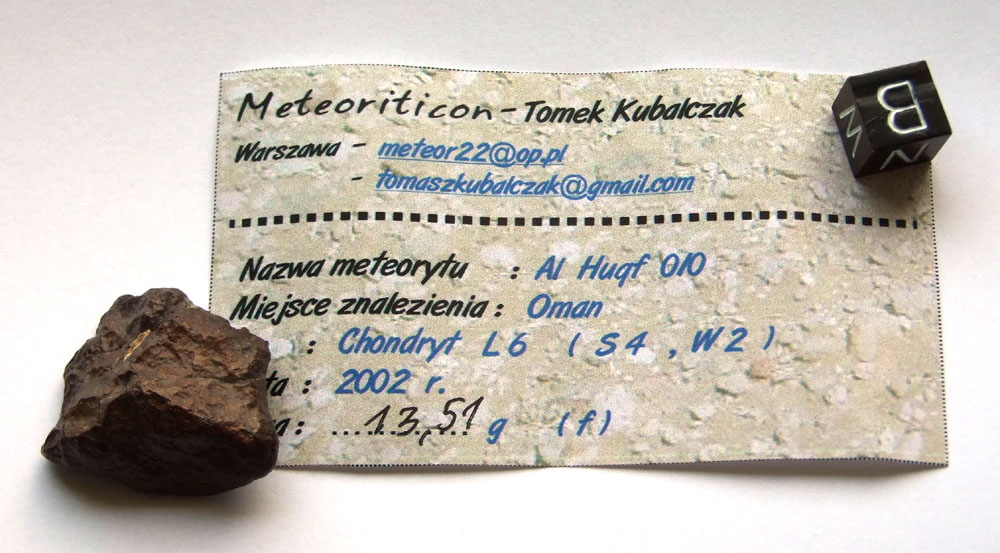 Meteoriticon - Tomek Kubalczak
Warszawa - meteor22@op.pl
- tomaszkubalczak@gmail.com
Nazwa meteorytu : Al Huqf 010
Miejsce znalezienia : Oman
: Chondryt L6 ( S4 , W2 )
ta : 2002 r.
a : 13,51 g (f)
B
W
N